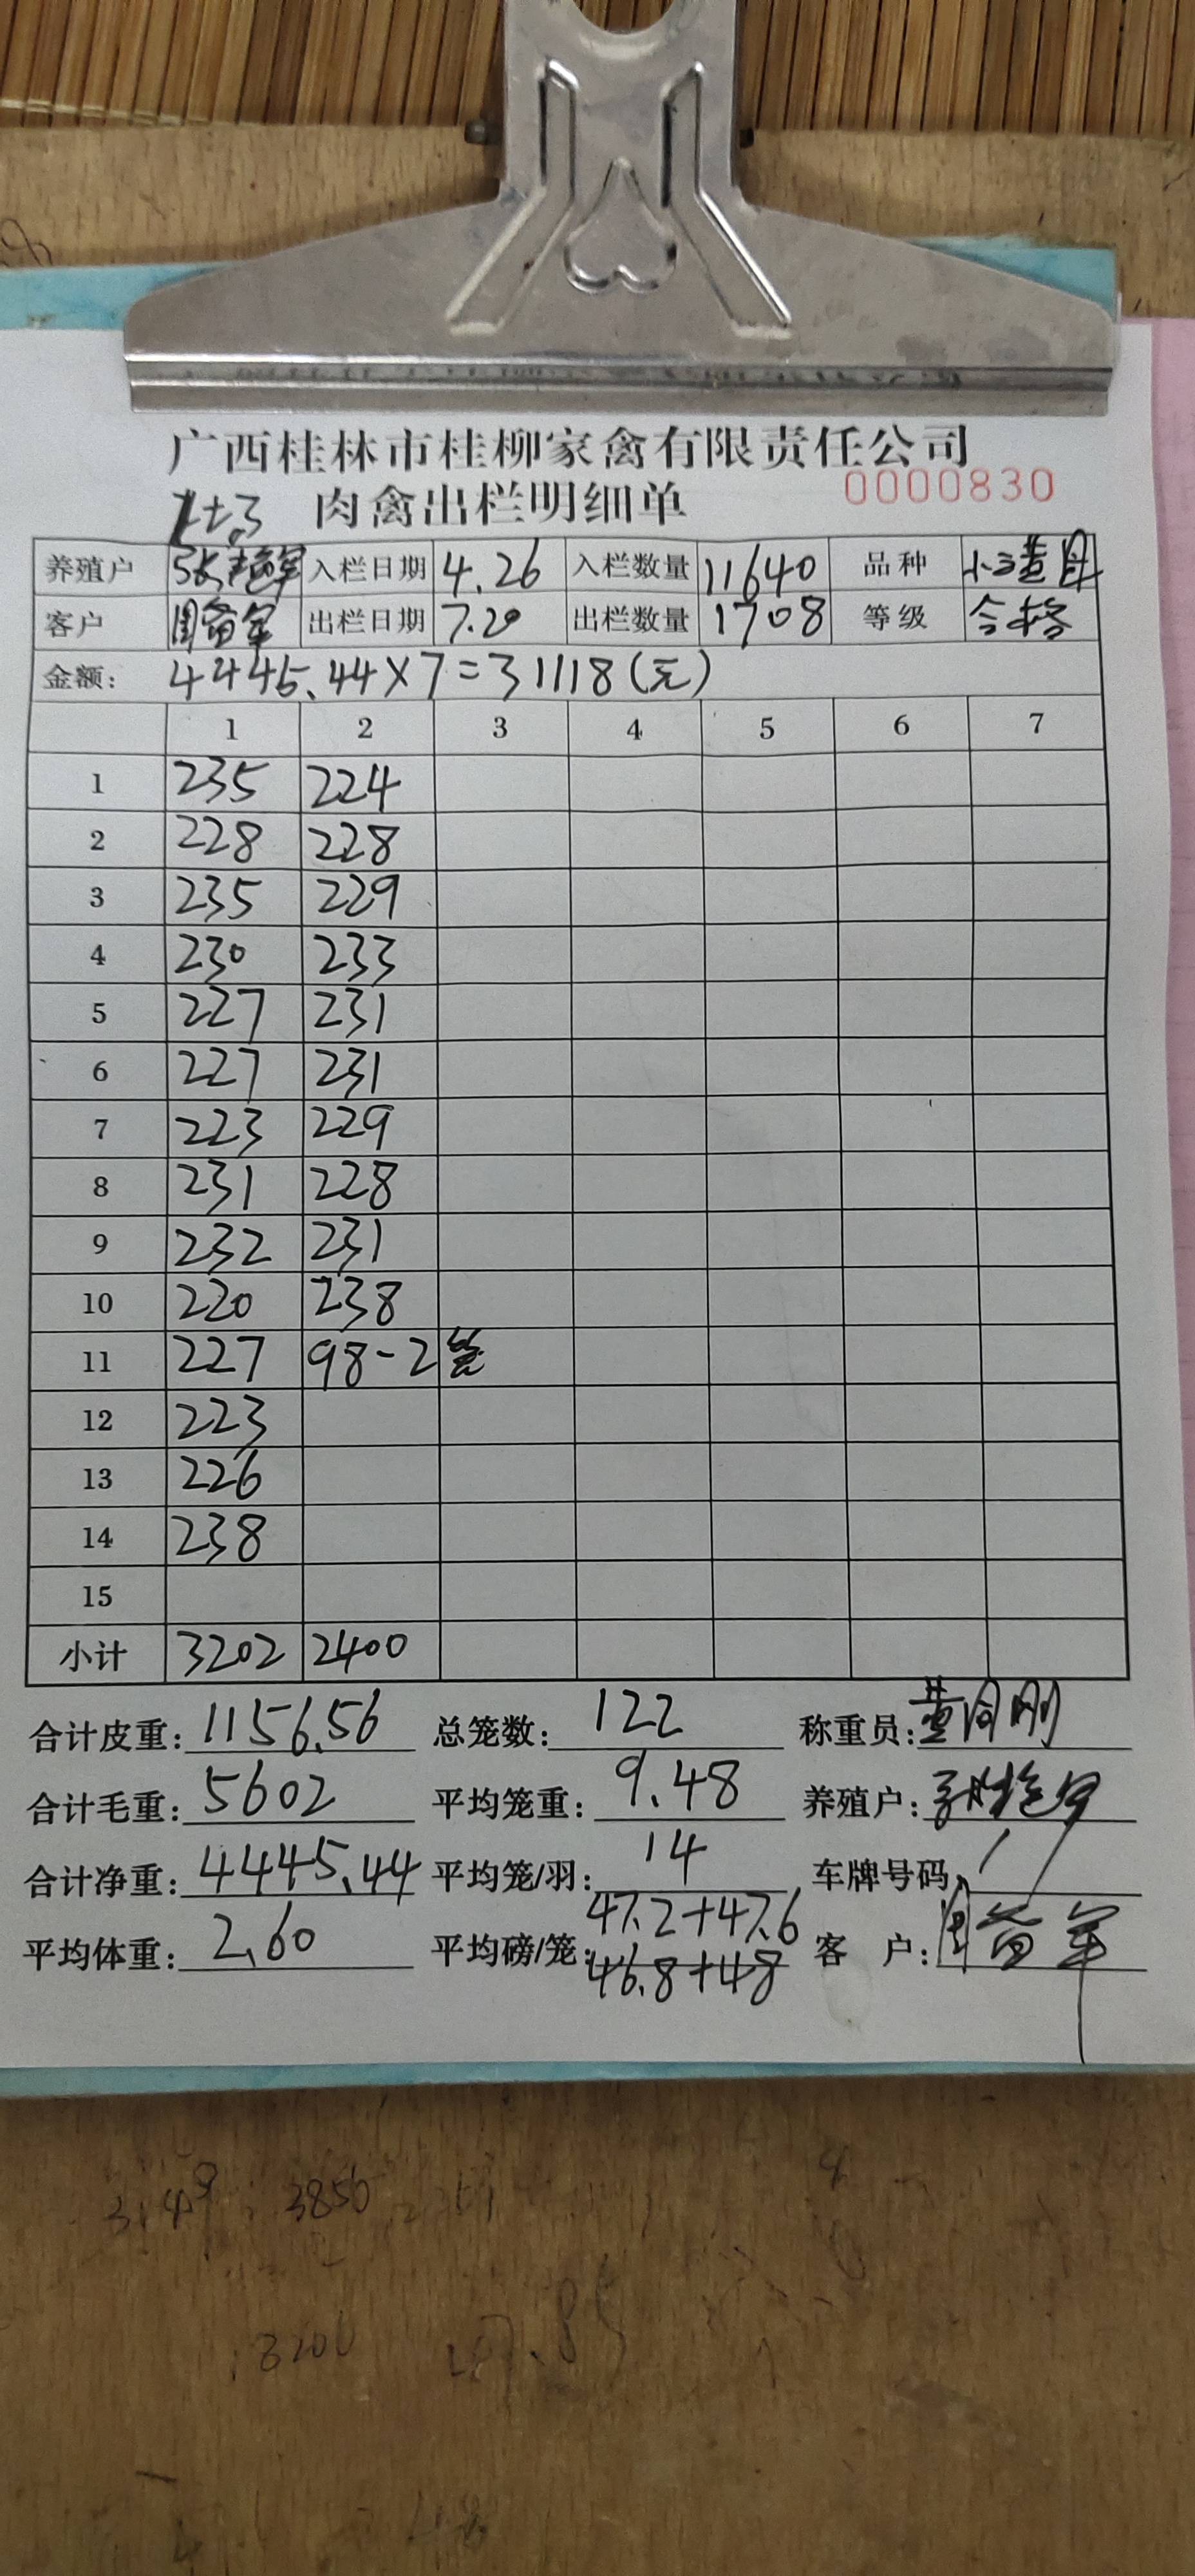 广西桂林市桂柳家禽有限责任公司
肉禽出栏明细单 0000830
养殖户 入栏日期 4.26 入栏数量 11640 品种
客户 出栏日期 7.20 出栏数量 1708 等级 合格
金额: 4445.44×7=31118(元)
1 2 3 4 5 6 7
1 235 224
2 228 228
3 235 229
4 230 233
5 227 231
6 227 231
7 223 229
8 231 228
9 232 231
10 220 238
11 227 98-2笼
12 223
13 226
14 238
15
小计 3202 2400
合计皮重: 1156.56 总笼数: 122 称重员:
合计毛重: 5602 平均笼重: 9.48 养殖户:
合计净重: 4445.44 平均笼/羽: 14 车牌号码
47.2+47.6
平均体重: 2.60 平均磅/笼: 客 户:
46.8+48
3850